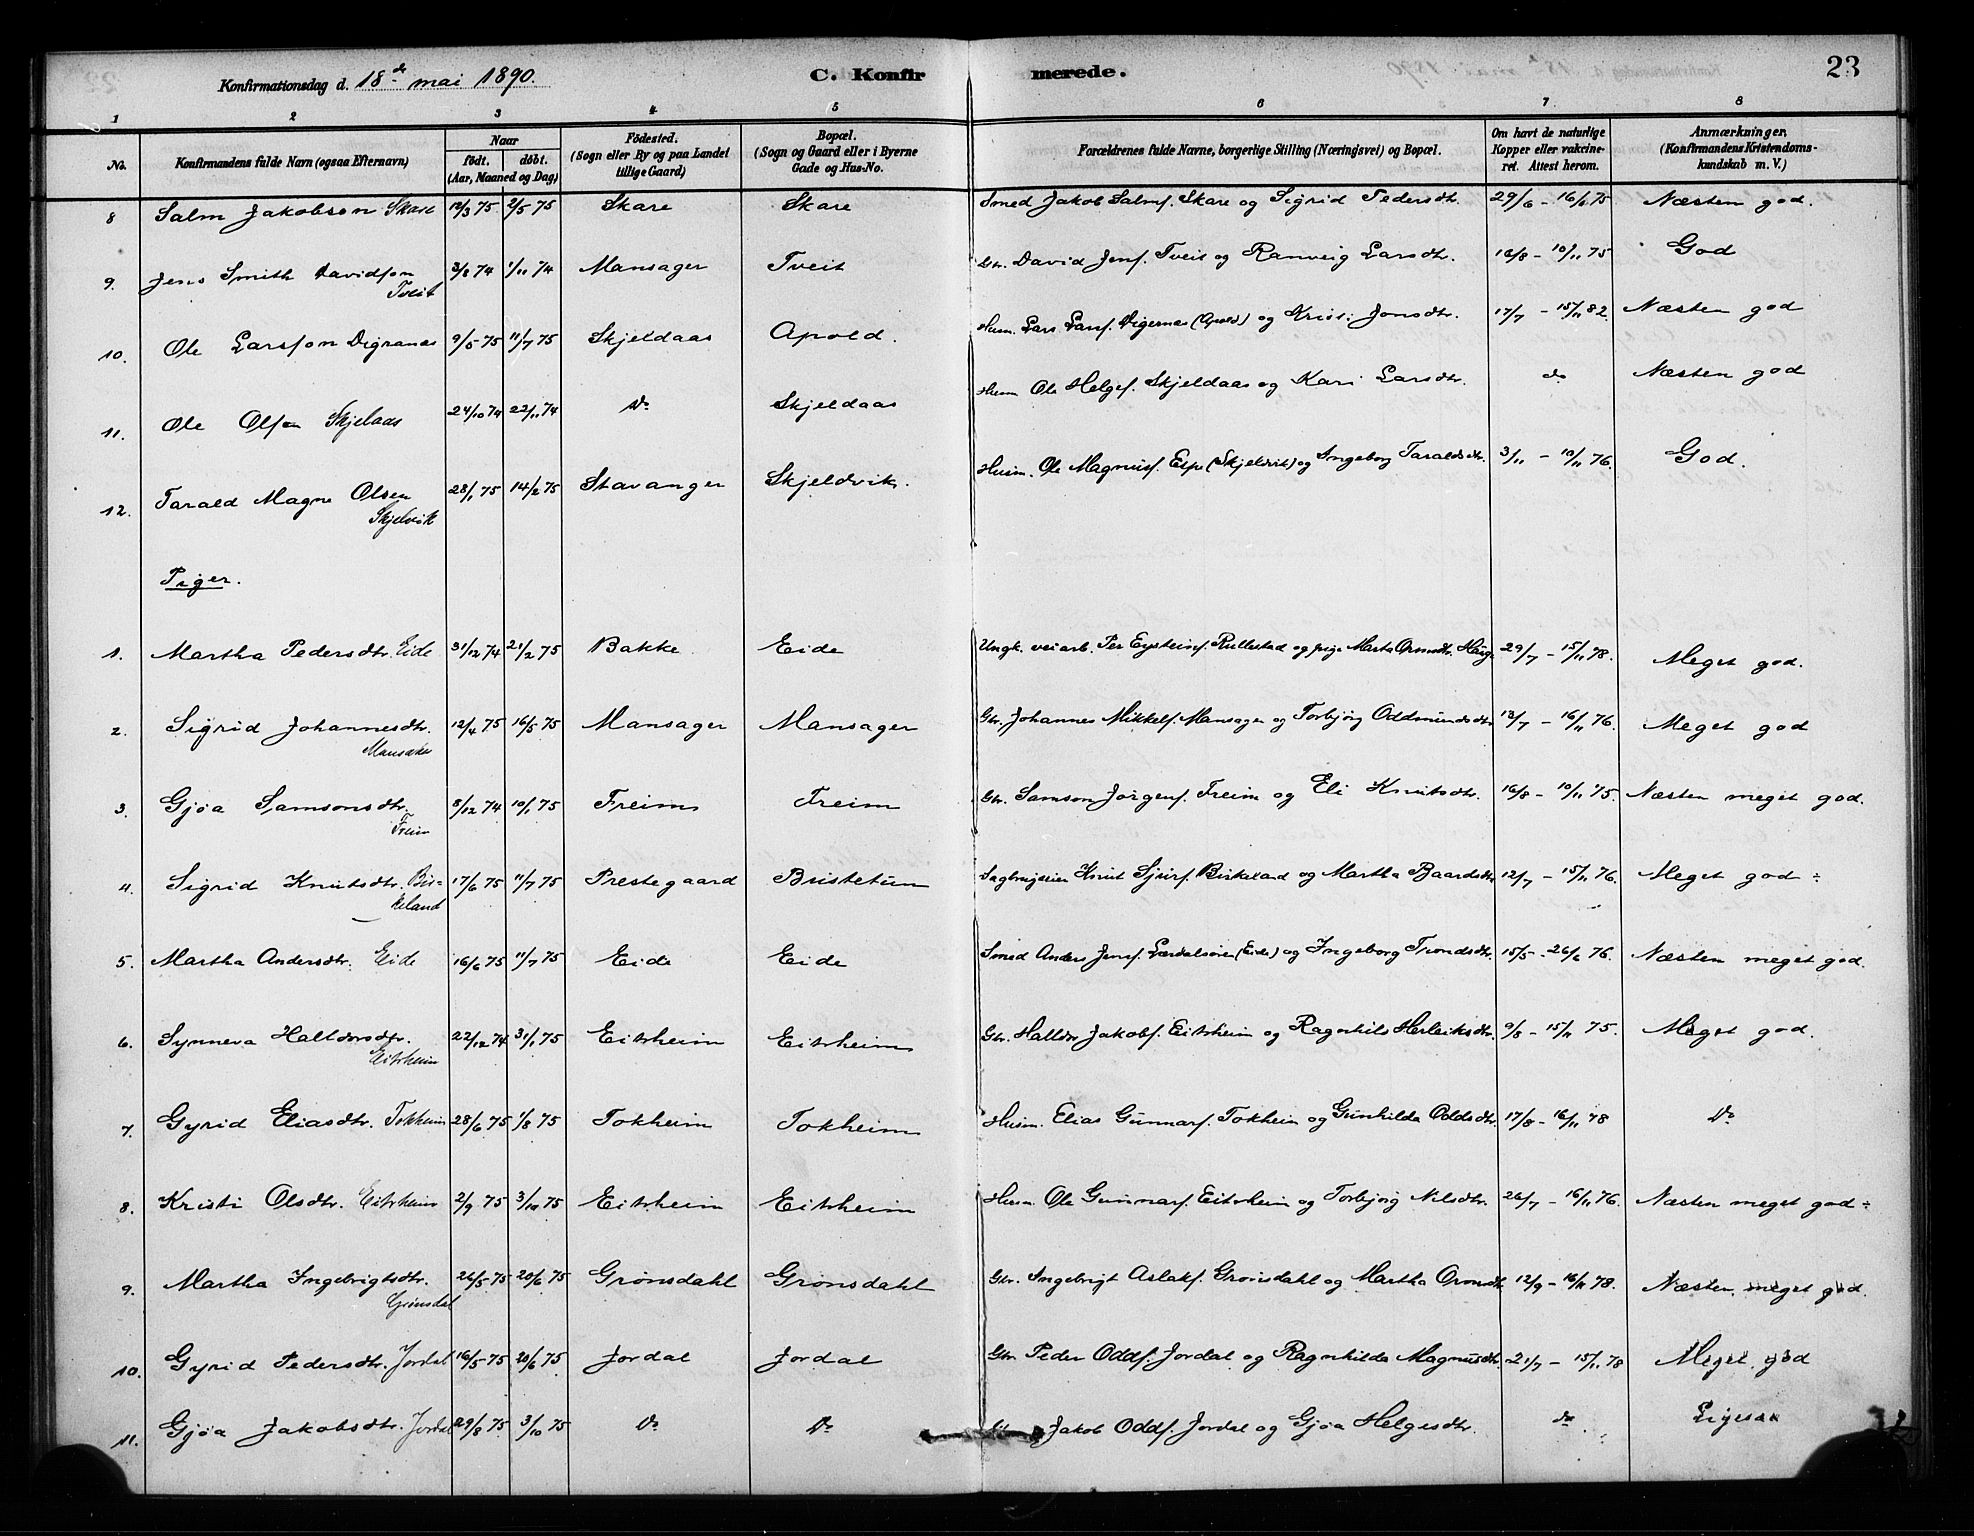 Konfirmationsdag d. 18de mai 1890. C. Konfirmerede. 23
1 2 3 4 5 6 7. 8
No. Konfirmandens fulde Navn (ogsaa Efternavn) Naar födt. döbt. (Aar, Maaned og Dag) Födested. (Sogn eller By og paa Landet tillige Gaard) Bopæl. (Sogn og Gaard eller i Byerne Gade og Hus-No. Forældrenes fulde Navne, borgerlige Stilling (Næringsvei) og Bopæl. Om havt de naturlige Kopper eller vakcineret. Attest herom. Anmærkninger. (Konfirmandens Kristendomskundskab m. V.)
8 Salm Jakobson Skare 12/3 75 2/5 75 Skare Skare Smed Jakob Salmf. Skare og Sigrid Pedersdtr. 29/6 - 16/8 75 Næsten god.
9. Jens Smith Davidson 3/8 74 1/11 74 Mansager Tveit Gbr. David Jensf. Tveit og Ranveig Larsdtr. 16/8 - 10/11 75 God
Tveit
10. Ole Larsson Digranes 9/5 75 11/7 75 Skjeldaas Apold. Husm. Lars Larsf. Digernes (Apold) og Kristi Jonsdtr. 17/7 - 15/11 82. Næsten god
11. Ole Olsen Skjelaas 24/10 74 22/11 74 Do Skjeldaas Husm Ole Helgef. Skjeldaas og Kari Larsdtr. do Næsten god
12. Tarald Magne Olsen 28/1 75 14/2 75 Stavanger Skjeldvik. Husm. Ole Magnusf. Espe (Skjeldvik) og Ingeborg Taraldsdtr. 3/11 - 10/11 76. God.
Skjelvik
Piger.
1. Martha Pedersdtr. Eide 31/12 74 21/2 75 Bakke Eide Ungk. veiarb. Per Eysteinsf. Rullestad og pige Marta Ormsdtr. Haug 29/7 - 15/11 78. Meget god.
2. Sigrid Johannesdtr. 12/4 75 16/5 75 Mansager Mansager Gbr. Johannes Mikkelf. Mansager og Torbjörg Oddmundsdtr 13/7 - 16/11 76. Meget god
Mansaker
3. Gjøa Samsonsdtr. 8/12 74 10/1 75 Freim Freim Gbr. Samson Jörgenf. Freim og Eli Knutsdtr. 16/8 - 10/11 75. Næsten meget god.
Freim
4. Sigrid Knutsdtr. Bir- 17/6 75 11/7 75 Prestegaard Bustetun Sagbrugseier Knut Sjursf. Birkeland og Martha Baardsdtr 12/7 - 15/11 76. Meget god ÷
keland
5. Martha Andersdtr. Eide 16/6 75 11/7 75 Eide Eide Smed Anders Jensf. Lærdalsören (Eide) og Ingeborg Trondsdtr. 15/5 - 26/6 76. Næsten meget god.
6. Synneva Halldorsdtr. 22/12 74 31/1 75 Eitrheim Eitrheim Gbr. Halldor Jakobf. Eitrheim og Ragnhild Herleiksdtr. 9/8 - 15/11 75. Meget god.
Eitrheim
7. Gyrid Eliasdtr. Tokheim 28/6 75 1/8 75 Tokheim Tokheim Husm. Elias Gunnarf. Tokheim og Gunhilda Oddsdtr. 17/8 - 16/11 78 Do
8. Kristi Olsdtr. Eitrheim 2/9 75 3/10 75 Eitrheim Eitrheim Husm Ole Gunnarf. Eitrheim og Torbjörg Nilsdtr. 26/7 - 16/11 76. Næsten meget god ÷
9. Martha Ingebrigtsdtr. 26/5 75 20/6 75 Grönsdahl Grönsdahl Gbr. Ingebrigt Aslakf. Grönsdahl og Martha Ormsdtr. 12/9 - 16/11 78. Næsten meget god.
Grønsdal
10. Gyrid Pedersdtr. Jordal 16/5 75 20/6 75 Jordal Jordal Gbr Peder Oddf. Jordal og Ragnhilda Magnusdtr. 21/7 - 15/11 78 Meget god
11. Gjøa Jakobsdtr. Jordal 29/8 75 3/10 75 Do Do Gbr Jakob Oddf. Jordal og Gjøa Helgesdtr. do Ligesaa